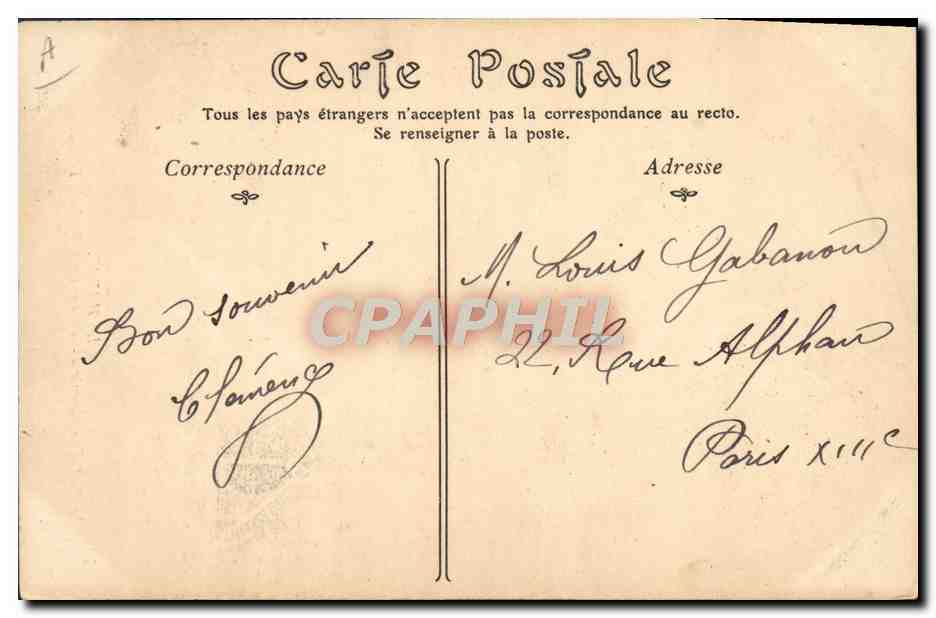 A
Carte Postale
Tous les pays étrangers n'acceptent pas la correspondance au recto.
Se renseigner à la poste.
Correspondance
Bon souvenir
Clémence
Adresse
M. Louis Gabanon
22, Rue Alphan
Paris XIIIe
CPAPHIL